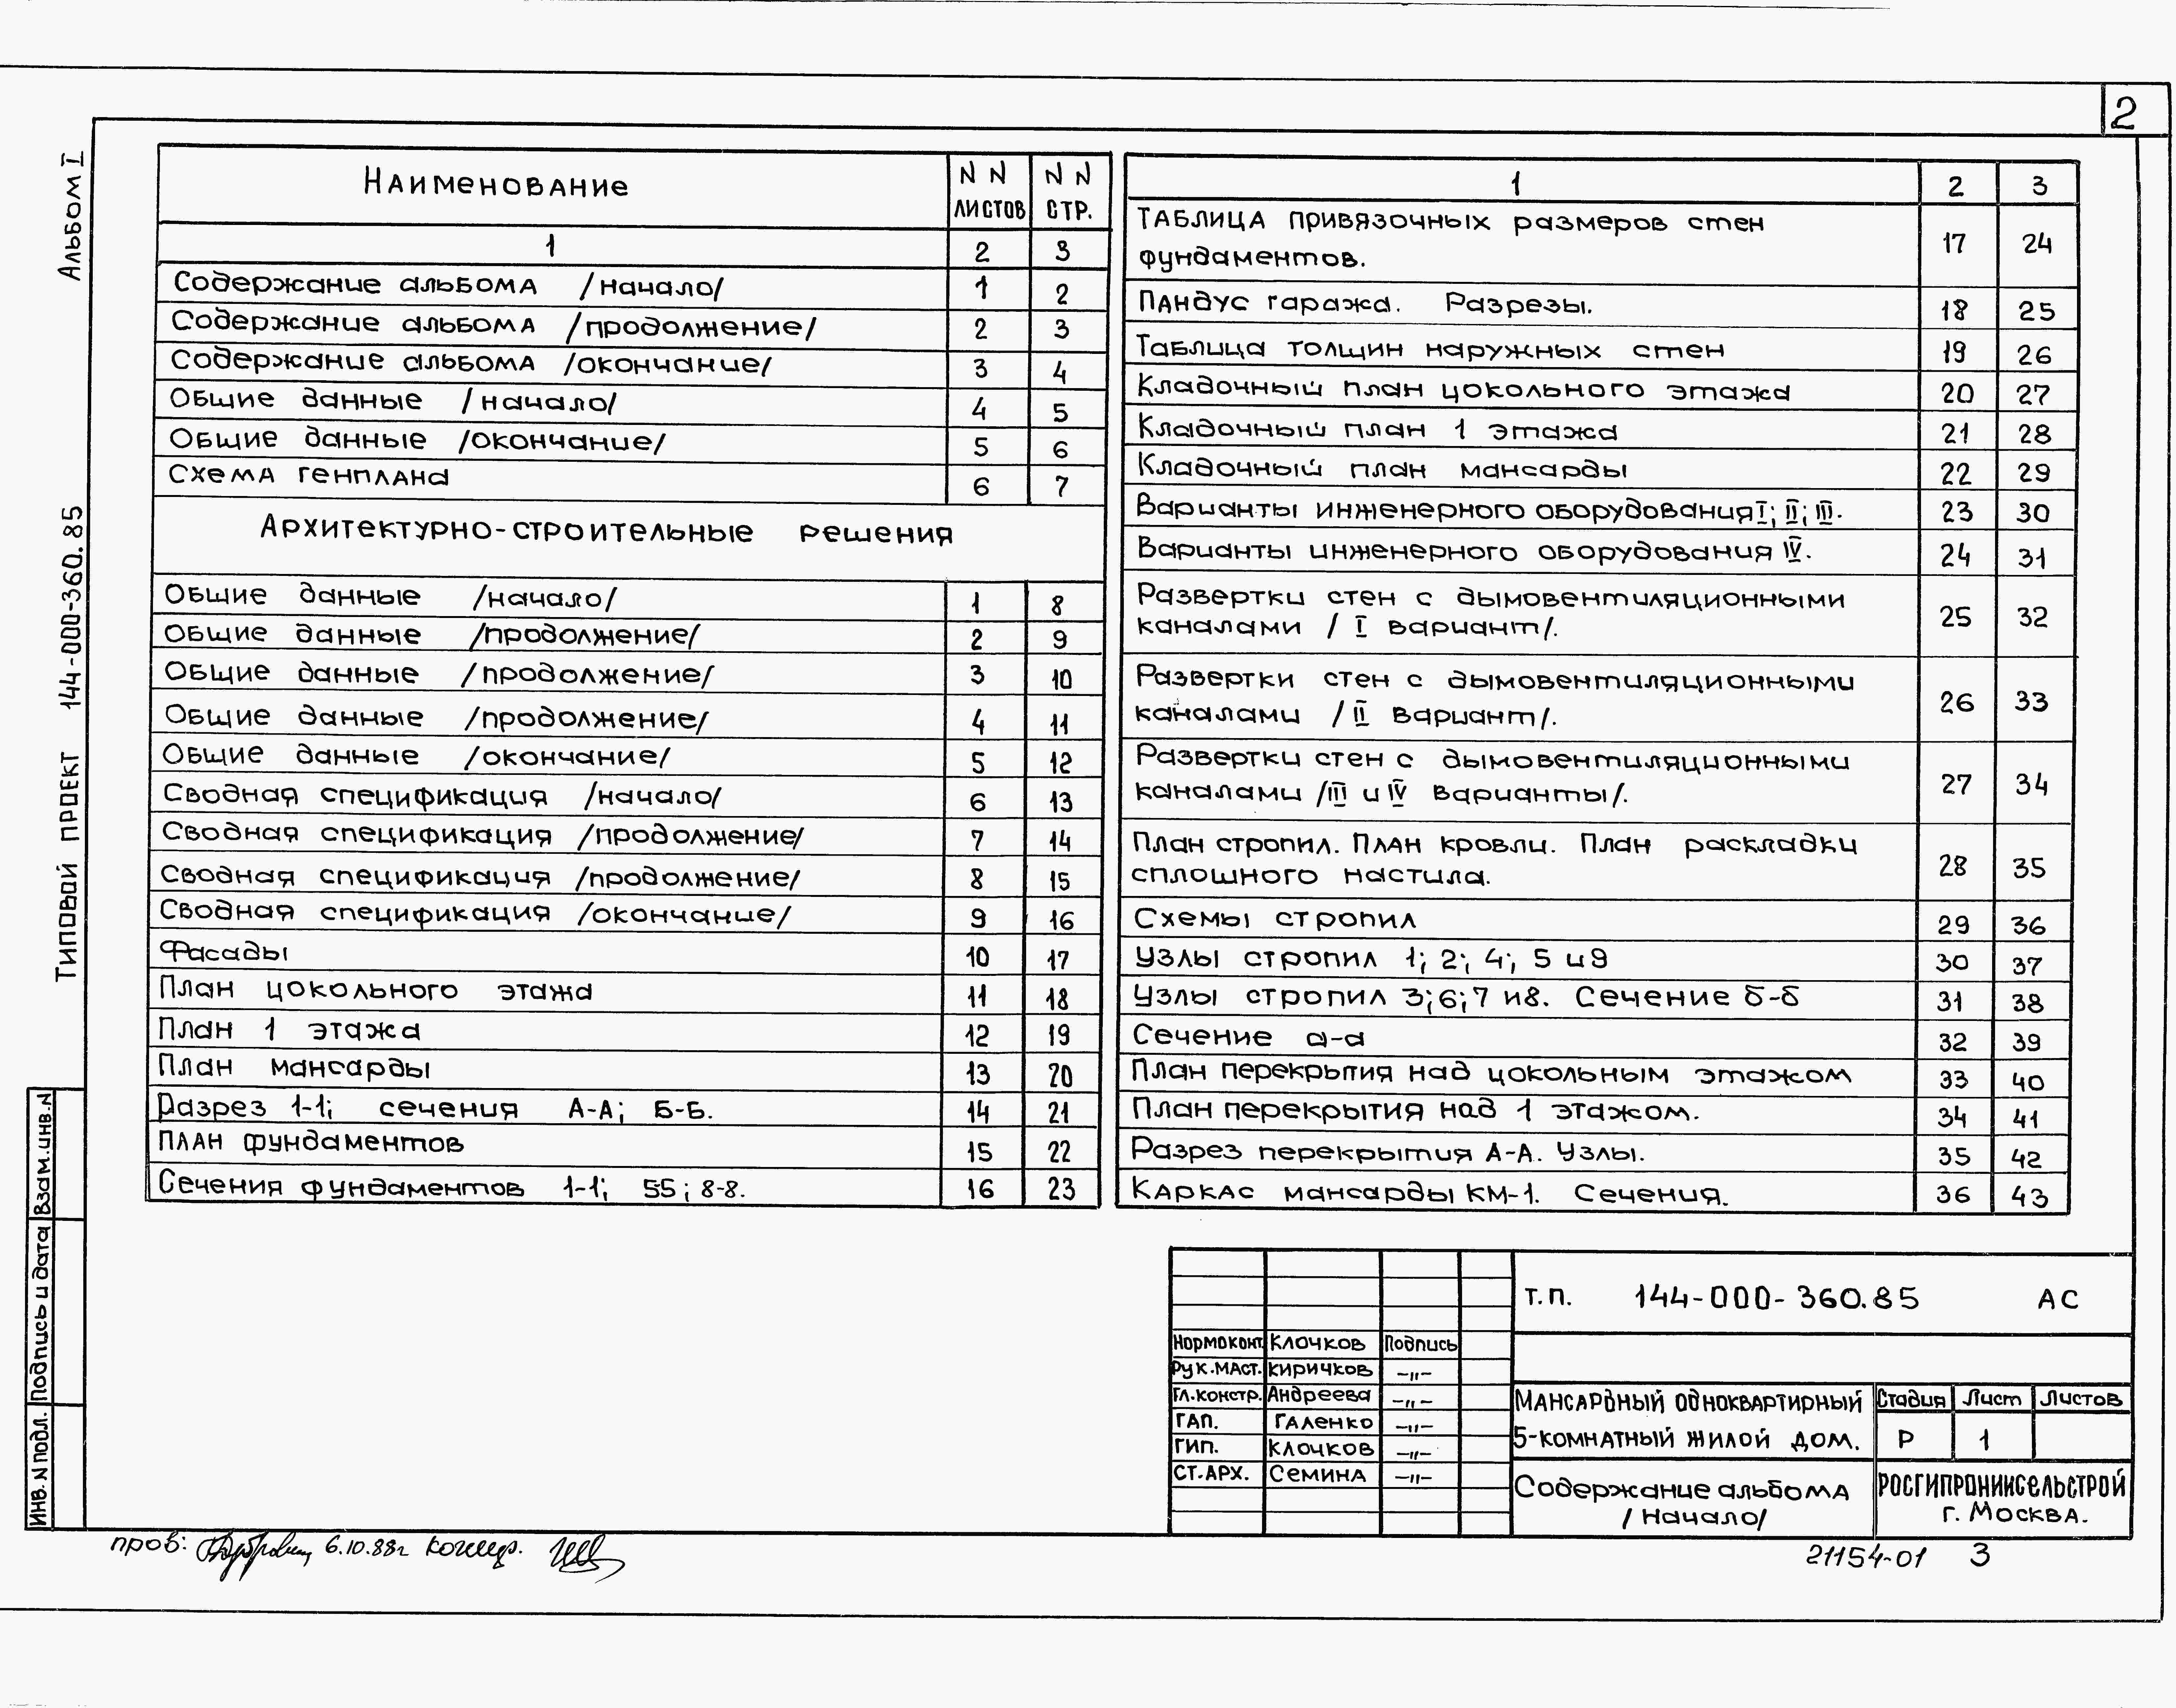 2
Альбом I
Типовой проект 144-000-360.85
Наименование
N N листов
N N стр.
1 2 3
Содержание альбома /начало/ 1 2
Содержание альбома /продолжение/ 2 3
Содержание альбома /окончание/ 3 4
Общие данные /начало/ 4 5
Общие данные /окончание/ 5 6
Схема генплана 6 7
Архитектурно-строительные решения
Общие данные /начало/ 1 8
Общие данные /продолжение/ 2 9
Общие данные /продолжение/ 3 10
Общие данные /продолжение/ 4 11
Общие данные /окончание/ 5 12
Сводная спецификация /начало/ 6 13
Сводная спецификация /продолжение/ 7 14
Сводная спецификация /продолжение/ 8 15
Сводная спецификация /окончание/ 9 16
Фасады 10 17
План цокольного этажа 11 18
План 1 этажа 12 19
План мансарды 13 20
Разрез 1-1; сечения А-А; Б-Б. 14 21
План фундаментов 15 22
Сечения фундаментов 1-1; 55; 8-8. 16 23
1 2 3
Таблица привязочных размеров стен
фундаментов. 17 24
Пандус гаража. Разрезы. 18 25
Таблица толщин наружных стен 19 26
Кладочный план цокольного этажа 20 27
Кладочный план 1 этажа 21 28
Кладочный план мансарды 22 29
Варианты инженерного оборудования I; II; III. 23 30
Варианты инженерного оборудования IV. 24 31
Развертки стен с дымовентиляционными
каналами / I вариант/. 25 32
Развертки стен с дымовентиляционными
каналами / II вариант/. 26 33
Развертки стен с дымовентиляционными
каналами /III и IV варианты/. 27 34
План стропил. План кровли. План раскладки
сплошного настила. 28 35
Схемы стропил 29 36
Узлы стропил 1; 2; 4; 5 и 9 30 37
Узлы стропил 3; 6; 7 и 8. Сечение б-б 31 38
Сечение а-а 32 39
План перекрытия над цокольным этажом 33 40
План перекрытия над 1 этажом. 34 41
Разрез перекрытия А-А. Узлы. 35 42
Каркас мансарды КМ-1. Сечения. 36 43
Взам.инв.N
Подпись и дата
Инв. N подл.
Т.П. 144-000-360.85 АС
Нормоконт. Клочков Подпись
Рук.маст. Киричков -"-
Гл.констр. Андреева -"-
ГАП. Галенко -"-
ГИП. Клочков -"-
Ст.арх. Семина -"-
Мансардный одноквартирный
5-комнатный жилой дом.
Стадия Лист Листов
Р 1
Содержание альбома
/Начало/
РОСГИПРОНИИСЕЛЬСТРОЙ
г. Москва.
пров: 6.10.88г
21154-01 3